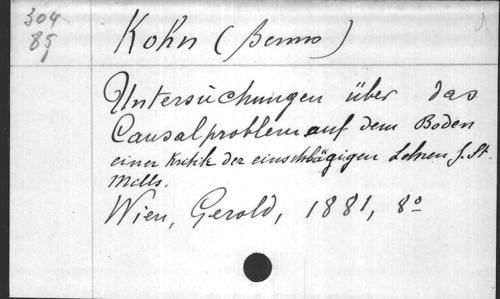 304
85
Kohn (Benno)
Untersuchungen über das
Causalproblem auf dem Boden
einer Kritik der einschlägigen Lehren J. St.
Mills.
Wien, Gerold, 1881, 8º